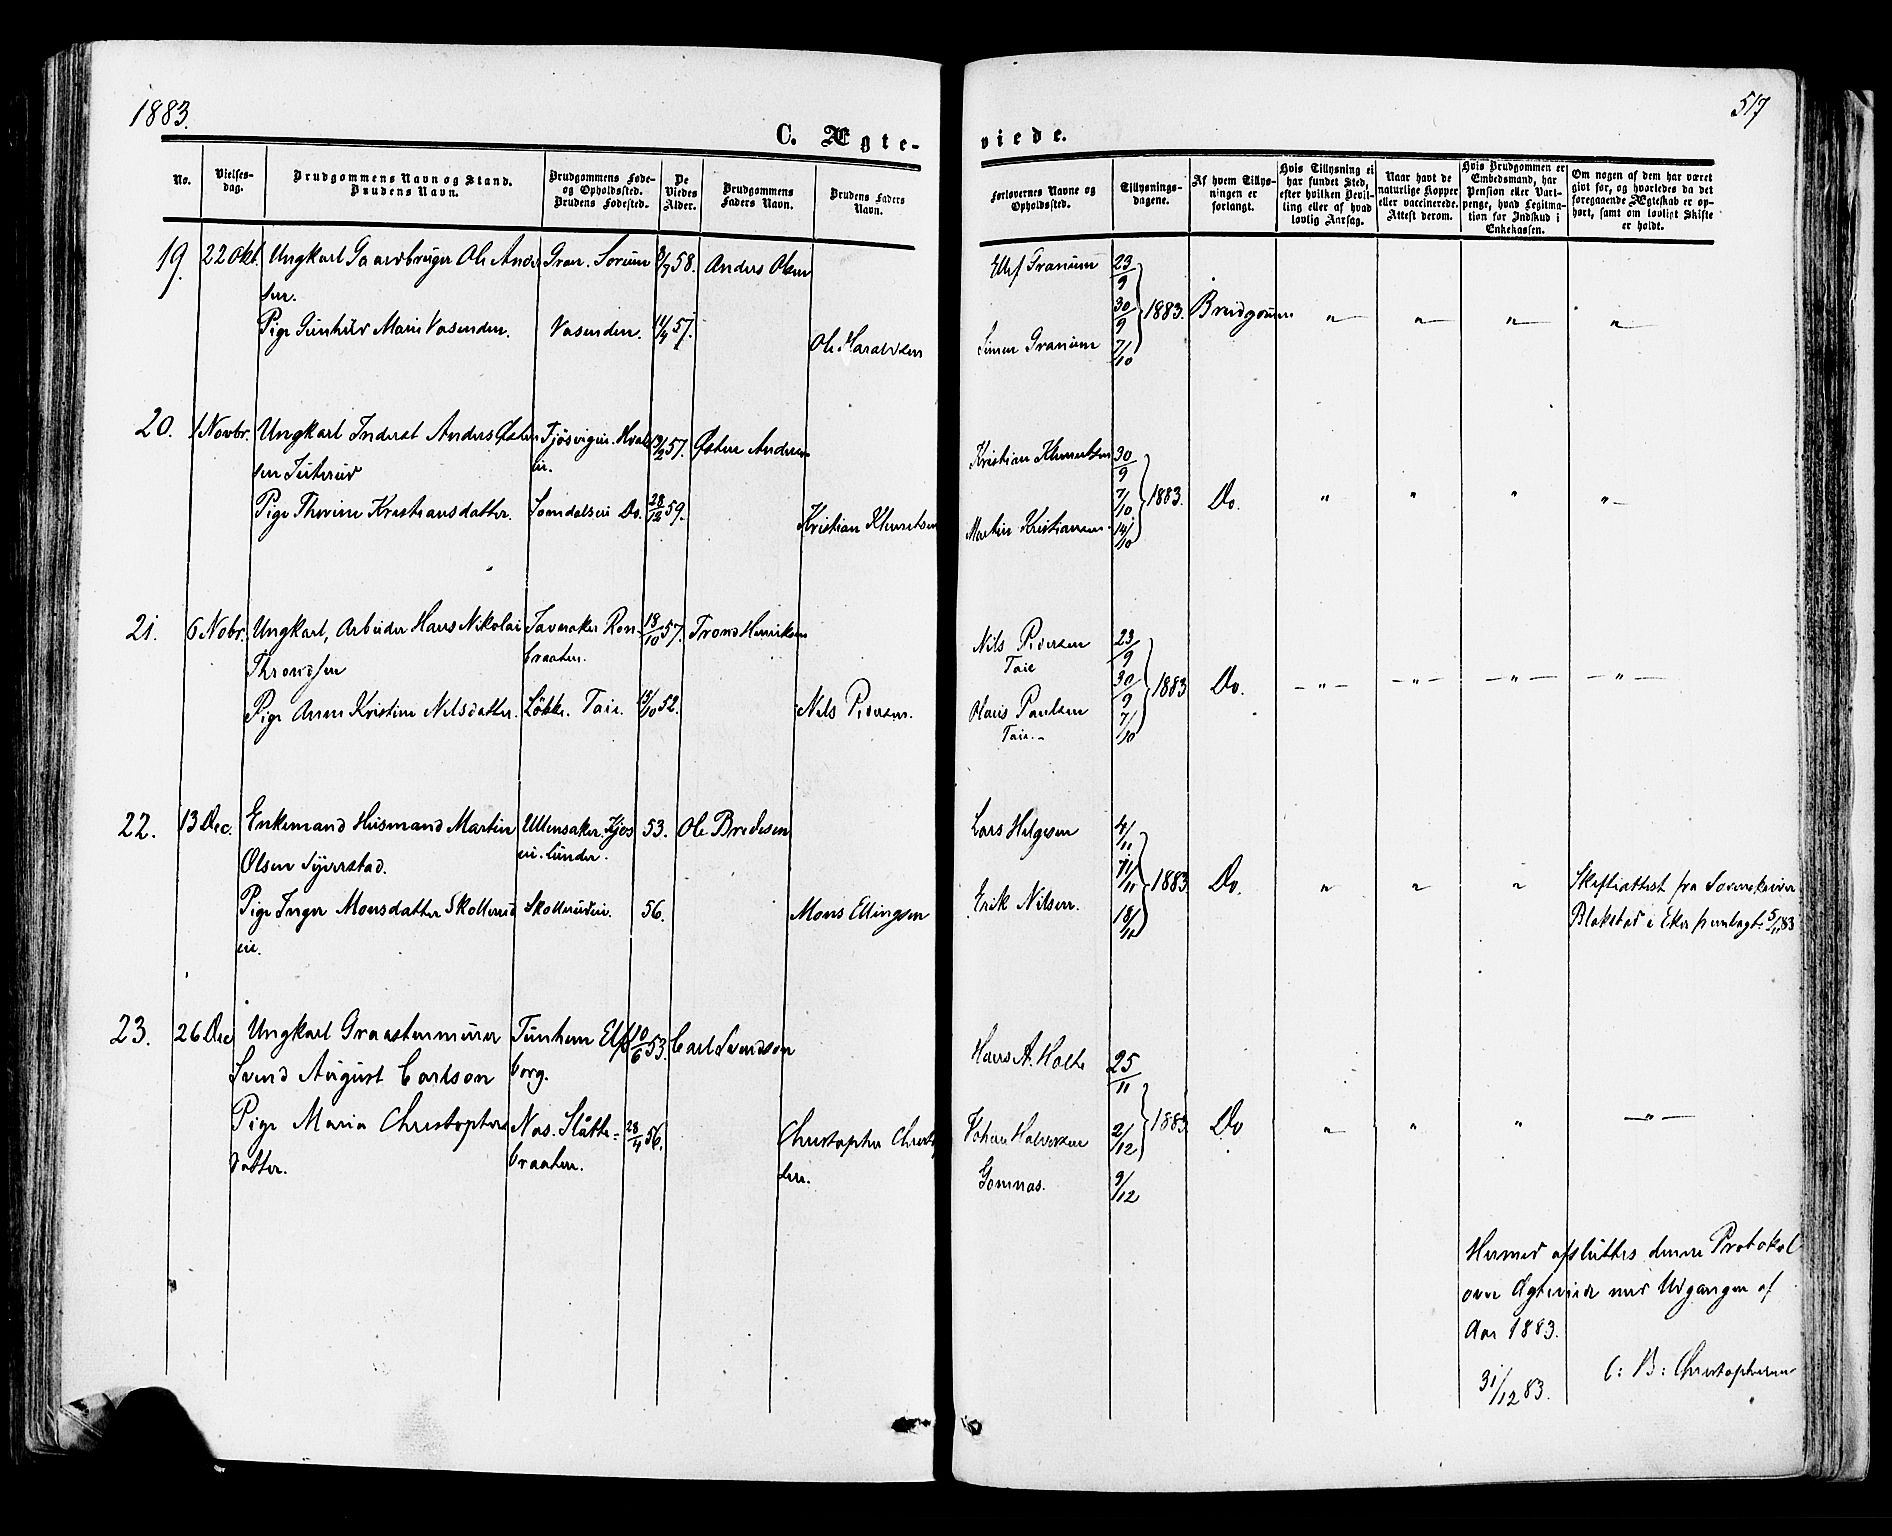 1883.
517
C. Ægte-
viede.
No.
Vielses-
dag.
Brudgommens Navn og Stand.
Brudens Navn.
Brudgommens Føde-
og Opholdssted.
Brudens Fødested.
De
Viedes
Alder.
Brudgommens
Faders Navn.
Brudens Faders
Navn.
Forlovernes Navne og
Opholdssted.
Tillysnings-
dagene.
Af hvem Tillys-
ningen er
forlangt.
Hvis Tillysning ei
har fundet Sted,
efter hvilken Bevil-
ling eller af hvad
lovlig Aarsag.
Naar havt de
naturlige Kopper
eller vaccinerede.
Attest derom.
Hvis Brudgommen er
Embedsmand, har
Pension eller Vart-
penge, hvad Legitima-
tion for Indskud i
Enkekassen.
Om nogen af dem har været
givt før, og hvorledes da det
foregaaende Ægteskab er op-
hørt, samt om lovligt Skifte
er holdt.
19. 22 Okt. Ungkarl Gaardbruger Ole Anders
sen.
Gran. Sørum 8/7 58. Anders Olsen
Pige Gunhild Marie Vasenden. Vasenden. 11/4 57. Ole Haraldsen
Ellef Granum 23/9
30/9 1883. Brudgommen " " " "
Simen Granum 7/10
20. 1 Novbr. Ungkarl Inderst Anders Østen
sen Tuterud
Tjøsvigen. Hvals
ei.
13/2 57. Østen Andersen
Pige Thorine Kristiansdatter. Somdalsei Do. 28/12 59. Kristian Klemetsen
Kristian Klemetsen 30/9
7/10 1883. Do. " " " "
Martin Kristiansen 14/10
21. 6 Nobr. Ungkarl, Arbeider Hans Nikolai
Throndsen
Jævnaker Røn-
braaten.
18/10 57. Trond Henriksen
Pige Anne Kristine Nilsdatter. Løkke. Taie. 13/10 52. Nils Pedersen.
Nils Pedersen 23/9
Taie
30/9 1883 Do. " " " "
Hans Paulsen 7/10
Taie.
22. 13 Dec. Enkemand Husmand Martin
Olsen
Ullensaker.
ei. Lunder.
53. Ole Bredesen
Pige Inger Monsdatter Skollerud
eie.
Skollerudeie. 56. Mons Ellingsen
Lars Helgesen 4/11
11/11 1883 Do. " " "
Erik Nilsen. 18/11
Skifteattest fra
Blakstad i Eker fremlagt. 5/11 83
23. 26 Dec Ungkarl Graastensmurer
Svend August Carlson
Tunhem Elfs
borg.
10/6 53. Carl Svendson
Pige Maria Christophers
datter.
Næs. Slåtte-
braaten.
28/4 56. Christopher Christop
sen.
Hans A. Holte 25/11
Johan Halvorsen 2/12 1883 Do " " " "
Gomnæs. 9/12
Hermed afsluttes denne Protokol
over Ægteviede med Udgangen af
Aar 1883.
31/12 83. C: B: Christophersen